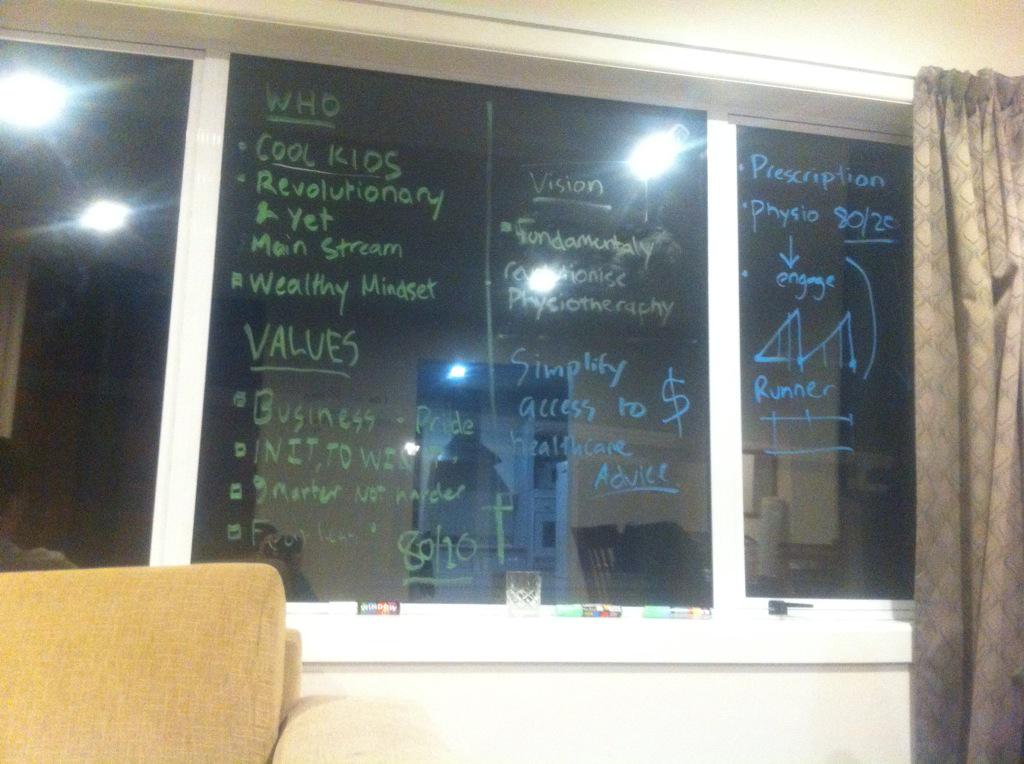 WHO
• COOL KIDS
• Revolutionary
& yet
Main Stream
Wealthy Mindset
VALUES
Business - Pride
IN IT, TO WIN
Smarter not harder
80/20
Vision
Fundamentaly
revolutionise
Physiotheraphy
Simplify
access to $
healthcare
Advice
• Prescription
• Physio 80/20
↓
• engage
Runner
WINDOW